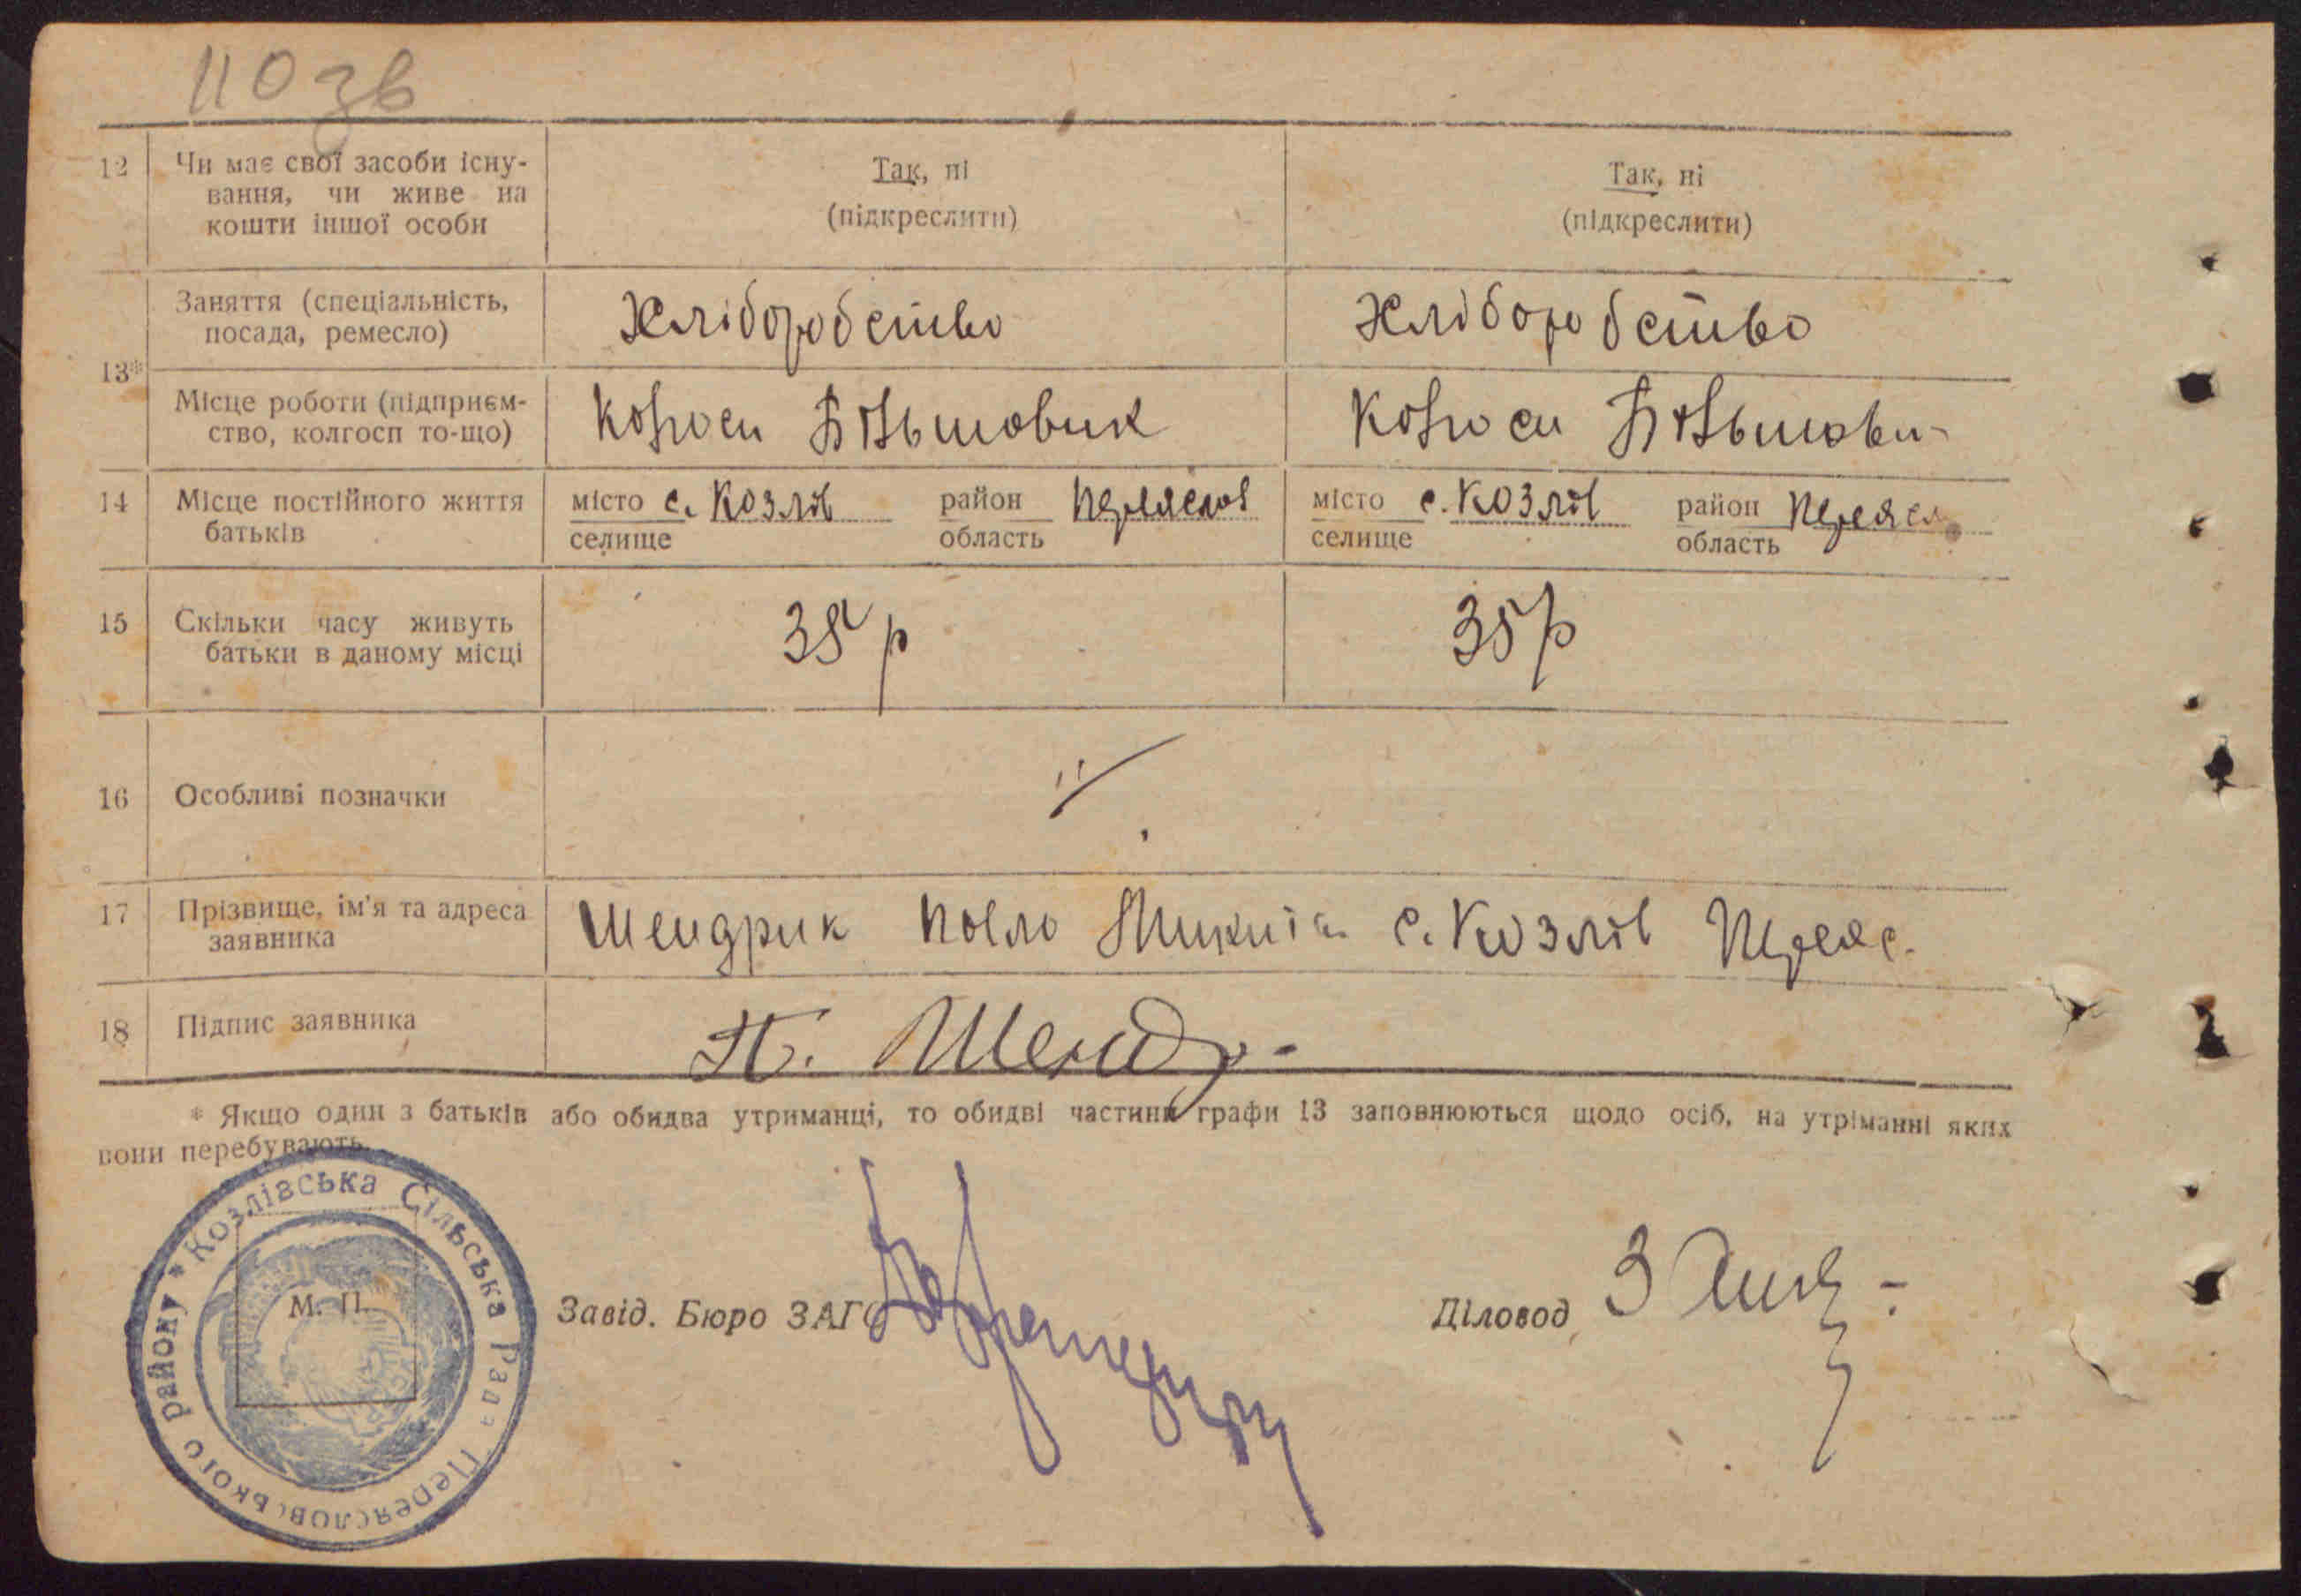 110 зв
12 Чи має свої засоби існу-
вання, чи живе на
кошти іншої особи
Так, ні
(підкреслити)
Так, ні
(підкреслити)
13*
Заняття (спеціальність,
посада, ремесло)
Хліборобство
Хліборобство
Місце роботи (підприєм-
ство, колгосп то-що)
Більшовик
14 Місце постійного життя
батьків
місто с. Козлів район Переяслов
селище область
місто с. Козлів район Переясл
селище область
15 Скільки часу живуть
батьки в даному місці
35 р
35 р
16 Особливі позначки
17 Прізвище, ім'я та адреса
заявника
Шендрик Павло Микита с. Козлів Переяс.
18 Підпис заявника
П. Шенд
* Якщо один з батьків або обидва утриманці, то обидві частини графи 13 заповнюються щодо осіб, на утріманні яких
вони перебувають.
Козлівська Сільська Рада Переясловського району *
М. П.
Завід. Бюро ЗАГС
Діловод